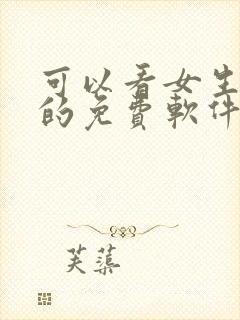 可以看女生
的免費軟件
芙蕖